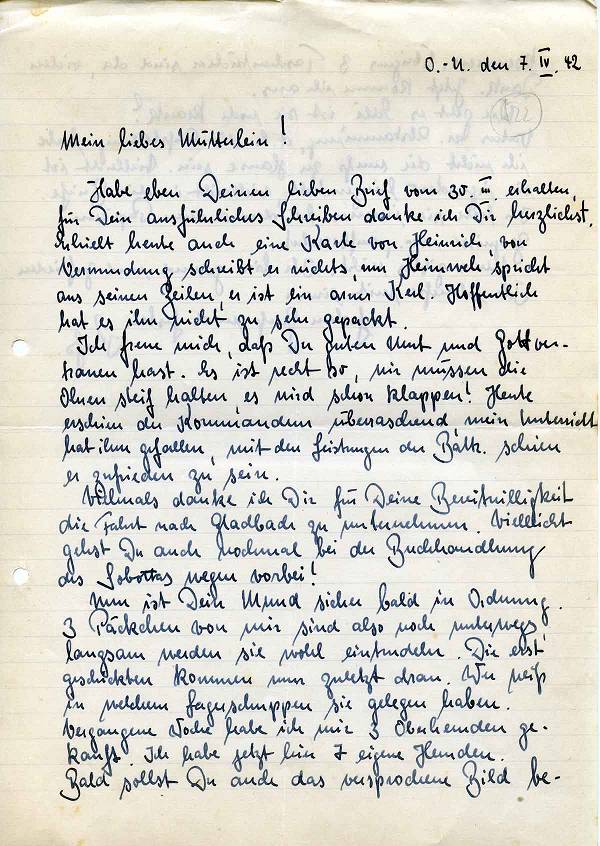 O.-U. den 7. IV. 42
Mein liebes Mütterlein!
Habe eben Deinen lieben Brief vom 30. III. erhalten,
für Dein ausführliches Schreiben danke ich Dir herzlichst.
Erhielt heute auch eine Karte von Heinrich, von
Verwundung schreibt er nichts, nur Heimweh spricht
aus seinen Zeilen, er ist ein armer Kerl. Hoffentlich
hat es ihn nicht zu sehr gepackt.
Ich freue mich, daß Du guten Mut und Gottver-
trauen hast. Es ist recht so, wir müssen die
Ohren steif halten, es wird schon klappen! Heute
erschien der Kommandeur überraschend, mein Unterricht
hat ihm gefallen, mit den Leistungen der Battr. schien
er zufrieden zu sein.
Vielmals danke ich Dir für Deine Bereitwilligkeit
die Fahrt nach Gladbach zu unternehmen. Vielleicht
gehst Du auch nochmal bei der Buchhandlung
des Sobottas wegen vorbei!
Nun ist Dein Mund sicher bald in Ordnung.
3 Päckchen von mir sind also noch unterwegs
langsam werden sie wohl eintrudeln. Die erst
geschickten kommen nur zuletzt dran. Wer weiß
in welchem Lagerschuppen sie gelegen haben.
Vergangene Woche habe ich mir 3 Oberhemden ge-
kauft. Ich habe jetzt hier 7 eigene Hemden.
Bald sollst Du auch das versprochene Bild be-